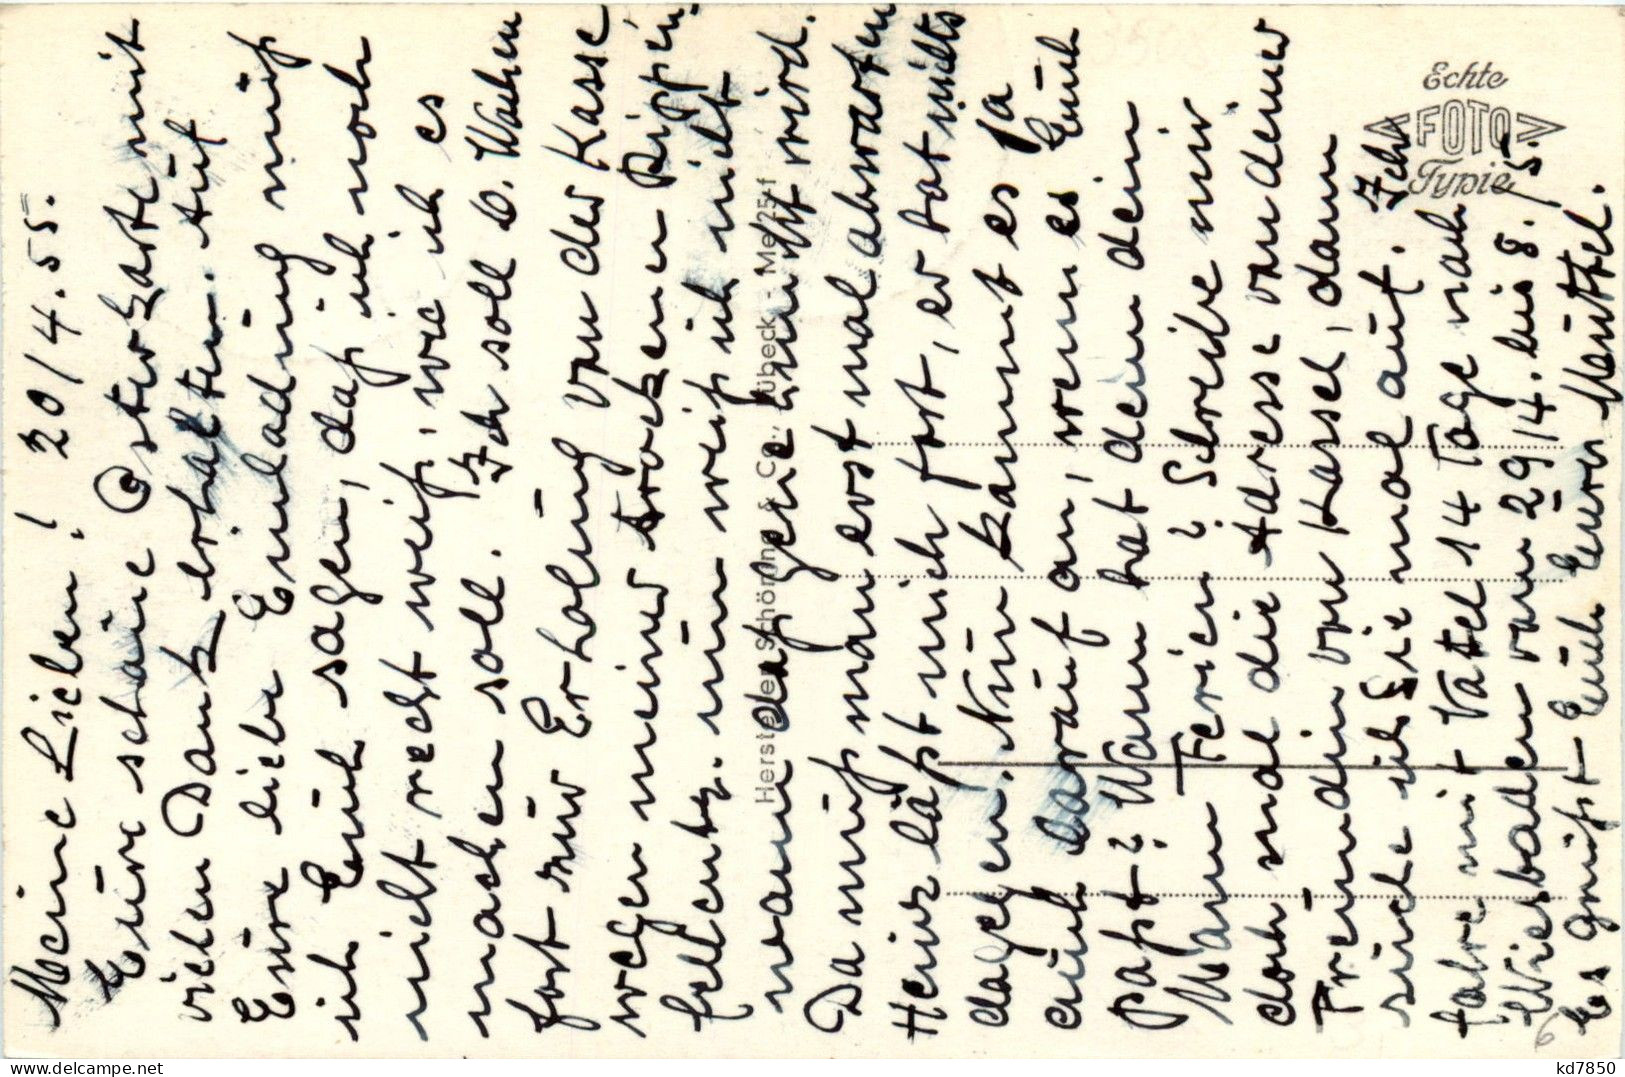 Meine Lieben! 20/4.55.
Eure schöne Osterkarte mit
vielen Dank erhalten. Auf
Eure liebe Einladung muß
ich Euch sagen, daß ich noch
nicht recht weiß, wie ich es
machen soll. Ich soll 6. Wochen
fort zur Erholung von der Kasse
wegen meiner trocken Rippen
fellentz. nun weiß ich nicht
wann daß genehmigt wird.
Da muß man erst mal abwarten
Heinz läßt mich fort, er hat nichts
dagegen. Nun kommt es ja
auch darauf an, wenn es Euch
paßt? Wann hat denn dein
Mann Ferien? Schreibe mir
doch mal die Adresse von deiner
Freundin von Kassel, dann
suche ich Sie mal auf. Ich
fahre mit Vatel 14 Tage nach
Wiesbaden vom 29/4. bis 8./5.
Es grüßt Euch Eure Muttel.
Echte
FOTO
Typie
Hersteller Schöning & Co., Lübeck - Me 25 f
kd7850